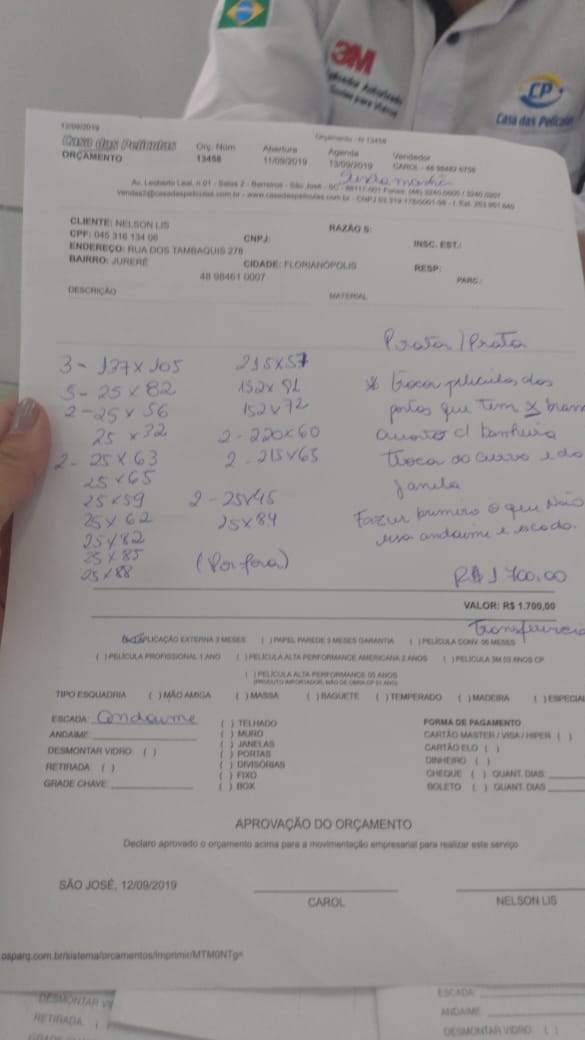 3M
Aplicador Autorizado
CP
Casa das Películas
12/09/2019
Orçamento - Nº 13458
Casa das Películas
ORÇAMENTO
Orç. Núm
13458
Abertura
11/09/2019
Agenda
13/09/2019
Vendedor
CAROL - 48 98482 6756
Sexta manhã
Av. Leoberto Leal, n 01 - Salas 2 - Barreiros - São José - SC - 88117-001 Fones: (48) 3240 0606 / 3240 0207
CLIENTE: NELSON LIS
RAZÃO S:
CPF: 045 316 134 06
CNPJ:
INSC. EST.:
ENDEREÇO: RUA DOS TAMBAQUIS 278
BAIRRO: JURERÊ
CIDADE: FLORIANÓPOLIS
RESP:
48 98461 0007
PARC.:
DESCRIÇÃO
MATERIAL
Prata/Prata
3 - 137 x 105
5 - 25 x 82
2 - 25 x 56
25 x 32
2 - 25 x 63
25 x 65
25 x 59
25 x 62
25 x 82
25 x 85
25 x 88
215 x 57
152 x 91
152 x 72
2 - 220 x 60
2 - 215 x 65
2 - 25 x 45
25 x 84
(Por fora)
* troca películas das
portas que tem X
quarto d banheira
troca do curvo e do
janela
Fazer primeiro o que não
usa andaime e escada.
R$ 1700,00
VALOR: R$ 1.700,00
Transferencia
APLICAÇÃO EXTERNA 3 MESES ( ) PAPEL PAREDE 3 MESES GARANTIA ( ) PELÍCULA CONV. 06 MESES
( ) PELÍCULA PROFISSIONAL 1 ANO ( ) PELÍCULA ALTA PERFORMANCE AMERICANA 2 ANOS ( ) PELÍCULA 3M 03 ANOS CP
( ) PELÍCULA ALTA PERFORMANCE 05 ANOS
TIPO ESQUADRIA ( ) MÃO AMIGA ( ) MASSA ( ) BAGUETE ( ) TEMPERADO ( ) MADEIRA ( ) ESPECIAL
ESCADA: andaime
ANDAIME:
DESMONTAR VIDRO: ( )
RETIRADA: ( )
GRADE CHAVE:
( ) TELHADO
( ) MURO
( ) JANELAS
( ) PORTAS
( ) DIVISÓRIAS
( ) FIXO
( ) BOX
FORMA DE PAGAMENTO
CARTÃO MASTER / VISA / HIPER ( )
CARTÃO ELO ( )
DINHEIRO ( )
CHEQUE ( ) QUANT. DIAS:
BOLETO ( ) QUANT. DIAS
APROVAÇÃO DO ORÇAMENTO
Declaro aprovado o orçamento acima para a movimentação empresarial para realizar este serviço
SÃO JOSÉ, 12/09/2019
CAROL
NELSON LIS
osparq.com.br/sistema/orcamentos/imprimir/MTM0NTg=
DESMONTAR
RETIRADA:
ESCADA:
ANDAIME:
DESMONTAR VIDRO: ( )